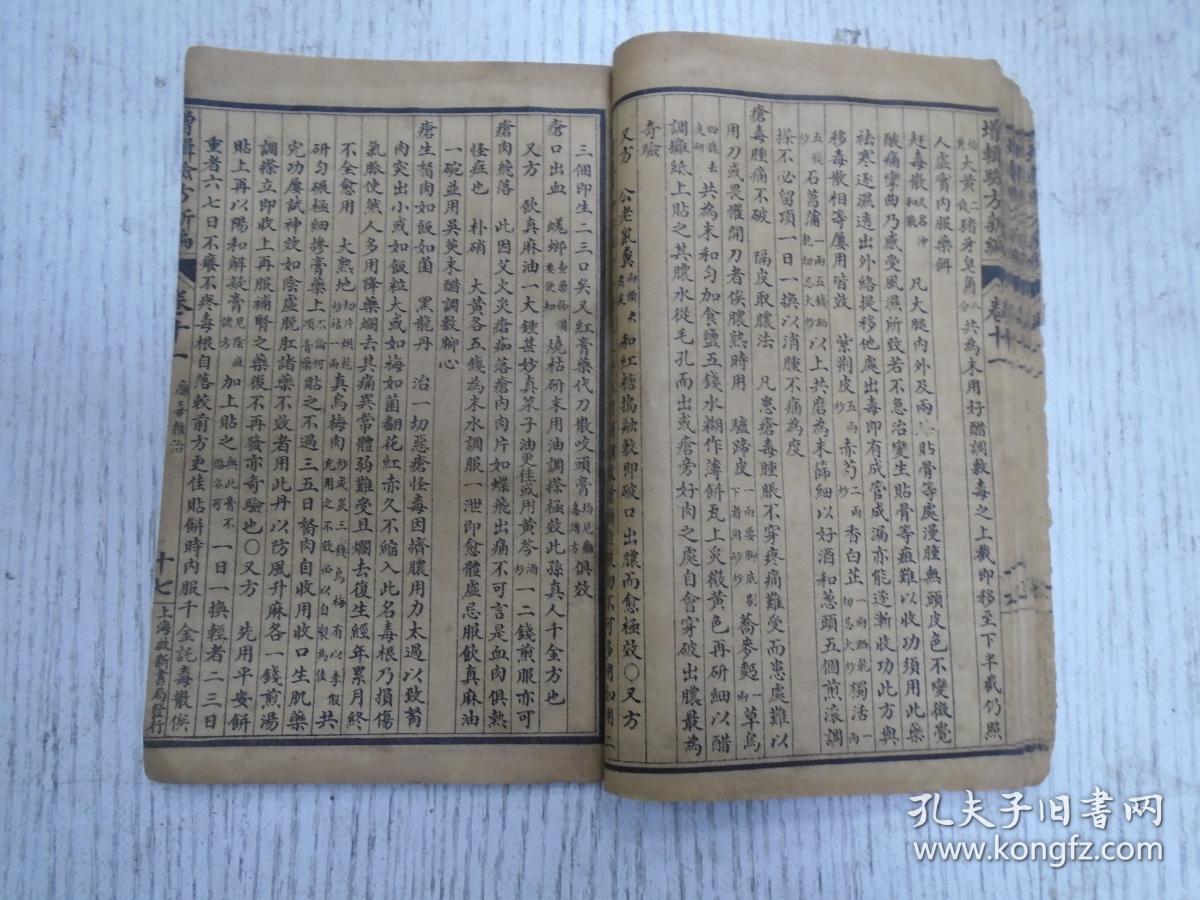 增輯驗方新編 卷十一
大黃 二 猪牙皂角 共為末用好醋調敷毒之上截即移至下半截仍照
人虛實內服藥餅
赶毒散 凡大腿內外及兩 貼骨等處漫腫無頭皮色不變微覺
酸痛攣曲乃感受風濕所致若不急治變生貼骨等疽難以收功須用此藥
祛寒逐濕透出外絡提移他處出毒即有成管成漏亦能逐漸收功此方與
移毒散相等屢用皆效 紫荆皮 五兩炒 赤芍 二兩炒 香白芷 一兩 獨活 一兩
五錢 石菖蒲 一兩五錢 以上共磨為末篩細以好酒和蔥頭五個煎滾調
搽不必留頂一日一換以消腫不痛為度
瘡毒腫痛不破 隔皮取膿法 凡患瘡毒腫脹不穿疼痛難受而患處難以
用刀或畏懼開刀者俟膿熟時用 驢蹄皮 一兩要脚底刮下者用砂炒 蕎麥麵 一兩 草烏
四錢去皮研 共為末和勻加食鹽五錢水糊作薄餅瓦上炙微黃色再研細以醋
調攤紙上貼之其膿水從毛孔而出或瘡旁好肉之處自會穿破出膿最為
奇驗
又方 公老鼠糞 兩頭尖者是 和紅糖搗融敷即破口出膿而愈極效○又方
三個即生二三口矣又紅膏藥代刀散咬頭膏 均見癰毒諸方 俱效
瘡口出血 蜣螂 燒枯研末用油調搽極效此孫真人千金方也
又方 飲真麻油一大鍾甚妙真菜子油更佳或用黃芩 酒炒 一二錢煎服亦可
瘡肉飛落 此因艾火炙瘡痂落瘡內肉片如蝶飛出痛不可言是血肉俱熱
怪症也 朴硝 大黃各五錢為末水調服一泄即愈體虛忌服飲真麻油
一碗並用吳萸末醋調敷脚心
瘡生瞀肉如飯如菌 黑龍丹 治一切惡瘡怪毒因擠膿用力太過以致瞀
肉突出小或如飯粒大或如梅如菌翻花紅赤久不縮入此名毒根乃損傷
氣脈使然人多用降藥爛去其痛異常體弱難受且爛去復生經年累月終
不全愈用 大熟地 切片烘乾炒枯一兩 真烏梅肉 炒成炭三錢烏梅有以李假充用之不效必以自製為佳 共
研勻碾極細摻膏藥上 不論何項膏藥 貼之不過三五日瞀肉自收用收口生肌藥
完功屢試神效如陰虛脫肛諸藥不效者用此丹以防風升麻各一錢煎湯
調搽立即收上再服補腎之藥後不再發亦奇驗也○又方 先用平安餅
貼上再以陽和解凝膏 見陰疽諸方 加上貼之 無此膏不貼亦可 一日一換輕者二三日
重者六七日不癢不疼毒根自落較前方更佳貼餅時內服千金託毒散俟
增輯驗方新編 卷十一 癰毒雜治 十七 上海啟新書局發行
孔夫子旧书网
www.kongfz.com